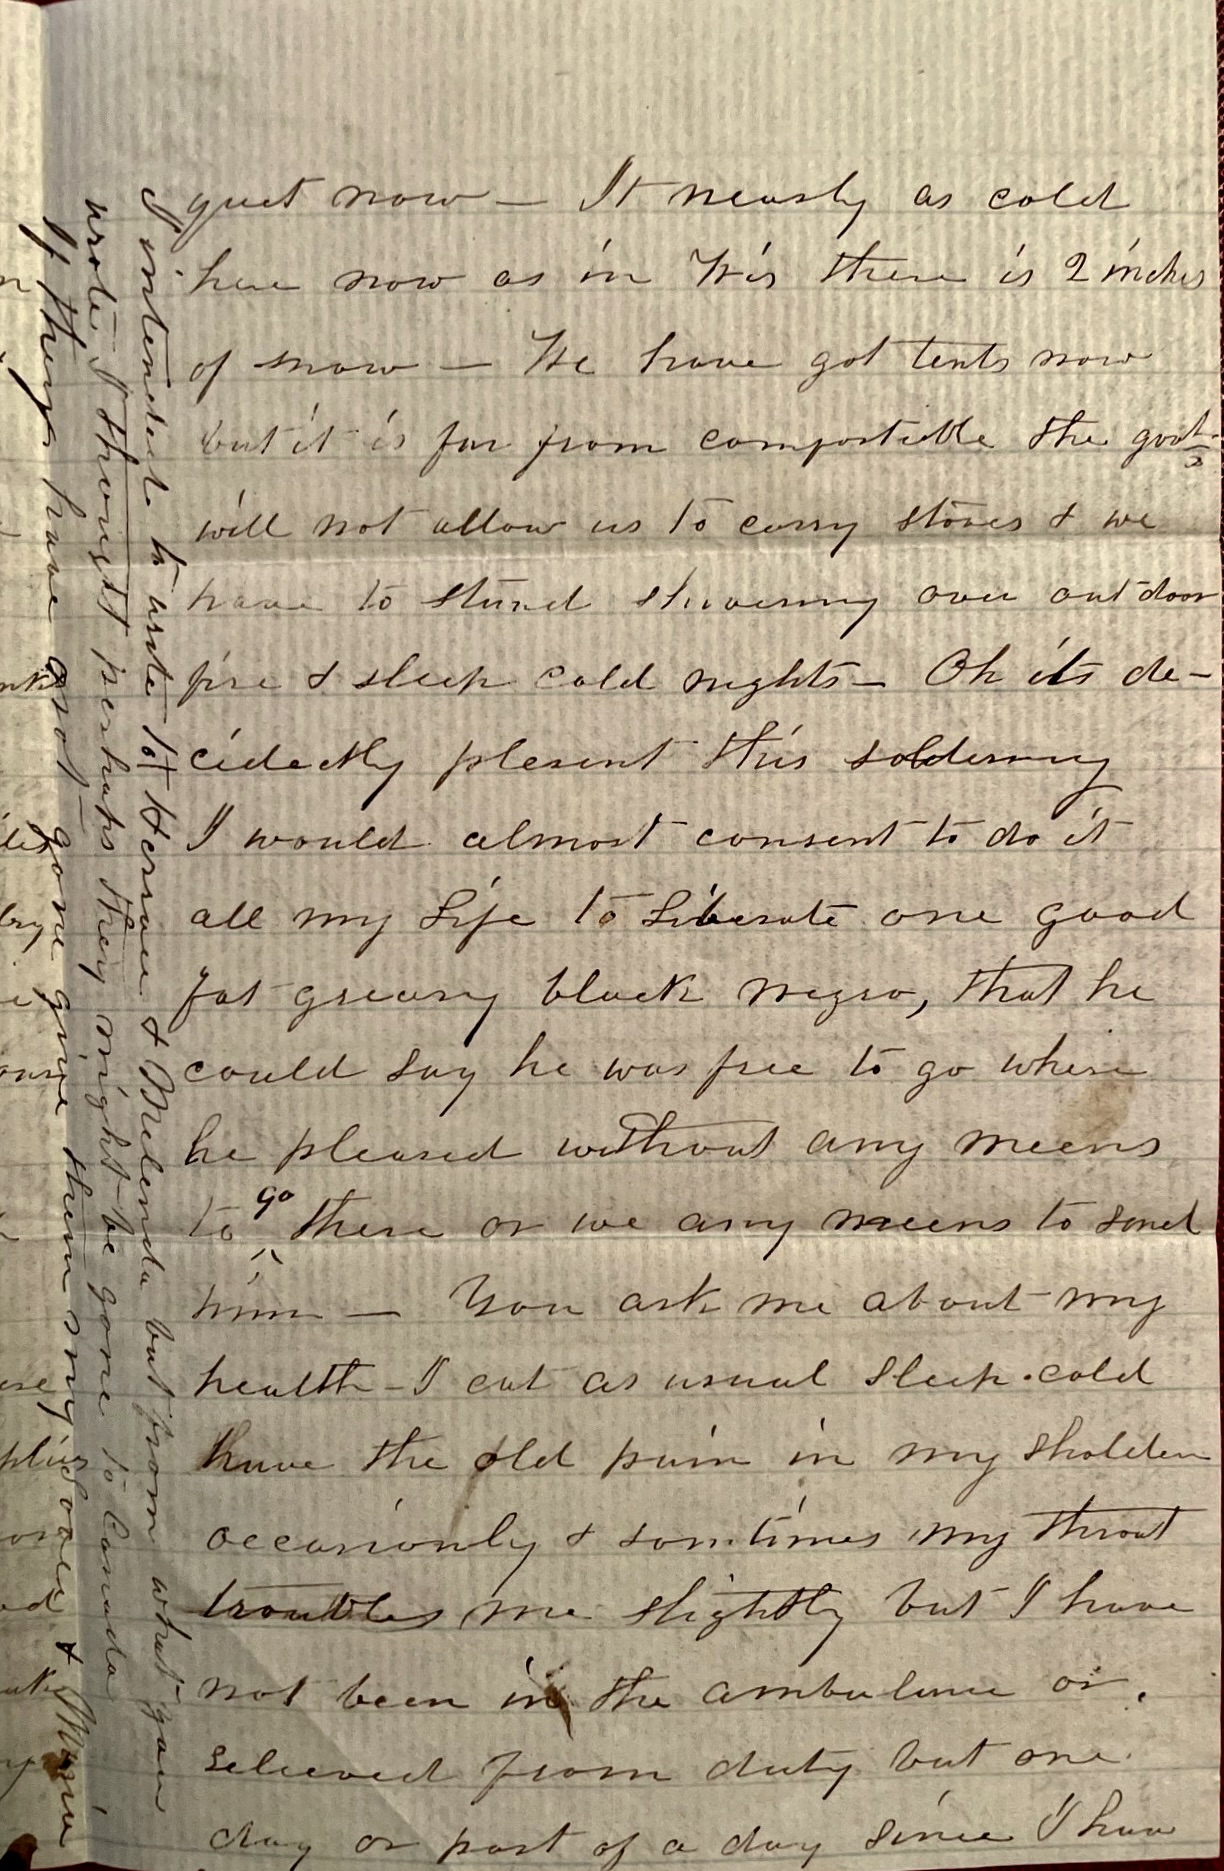 quiet now — It nearly as cold
here now as in Wis there is 2 inches
of snow — We have got tents now
but it is far from comfortable the govt
will not allow us to carry stoves & we
have to stand shivering over out door
fire & sleep cold nights — Oh its de-
cidedly plesent this soldering
I would almost consent to do it
all my Life to Liberate one good
fat greasy black negro, that he
could say he was free to go where
he pleased without any meens
to go there or we any meens to send
him — You ask me about my
health — I eat as usual sleep cold
have the old pain in my sholder
occasionly & somtimes my throat
troubles me slightly but I have
not been in the ambulance or
releived from duty but one
day or part of a day since I have
I intended to write to & Melinda but from what you
wrote I thought perhaps they might be gone to Canada
If they have not gone give them my Love & Mamie